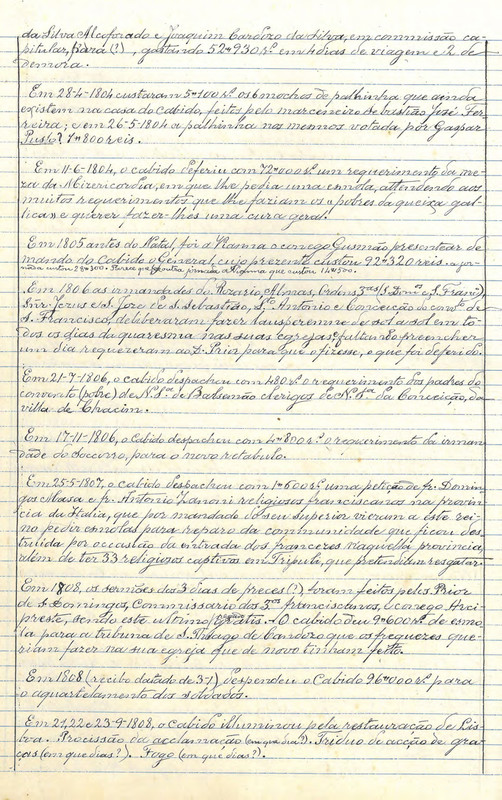 da Silva Alcoforado e Joaquim Cardozo da Silva, em commissão ca-
pitular, (para (?), gastando 52#930 rs. em 4 dias de viagem e 2 de
demora.
Em 28-4-1804 custaram 5#100 rs. os 6 mochos de palhinha que ainda
existem na casa do cabido, feitos pelo marceneiro Sebastião José Fer-
reira; e em 26-5-1804 a palhinha nos mesmos votada por Gaspar
Pusto? 7#800 reis.
Em 11-6-1804, o cabido deferiu com 72#000 rs. um requerimento da me-
za da Mizericordia, em que lhe pedia uma esmola, attendendo aos
muitos requerimentos que lhe faziam os "pobres da queixa gal-
lica" e querer fazer-lhes uma cura geral.
Em 1805 antes do Natal, foi a Vianna o conego Gusmão presentear de
mando do Cabido o General, cujo prezente custou 92#320 reis. A jor-
nada custou 28#300. Parece que fez outra jornada a Vianna que custou 14#500.
Em 1806 as irmandades do Rozario, Almas, Ordens 3.as (S. Dom.os e S. Fran.co),
Snr. Jezus e S. Jozé de S. Sebastião, S.to Antonio e Conceição do conv.to de
S. Francisco, deliberaram fazer Lausperenne de sol a sol em to-
dos os dias da quaresma nas suas egrejas: faltando preencher
um dia requereram ao D. Prior para que o fizesse, o que foi deferido.
Em 21-7-1806, o cabido despachou com 4#800 rs. o requerimento dos padres do
convento (pobre) de N. S.ra de Balsamão clerigos de N. S.ra da Conceição, da
villa de Chacim.
Em 17-11-1806, o Cabido despachou com 4#800 rs. o requerimento da irman-
dade do Socorro, para o novo retabulo.
Em 25-5-1807, o cabido despachou com 1#600 rs. uma petição de fr. Domin-
gos Masa e fr. Antonio Zanoni religiosos franciscanos na provin-
cia da Italia, que por mandado do seu superior vieram a este rei-
no pedir esmolas para reparo da communidade que ficou des-
truida por occasião da entrada dos francezes naquella provincia,
além de ter 33 religiosos captivos em Tripuli, que pretendiam resgatar.
Em 1808, os sermões dos 3 dias de preces (?), foram feitos pelos Prior
de S. Domingos, Commissario dos 3.os franciscanos, e conego Arci-
preste, sendo este ultimo gratis. O cabido deu 9#600 rs. de esmo-
la para a tribuna de S. Thiago de Candozo que os freguezes que-
riam fazer na sua egreja que de novo tinham feito.
Em 1808 (recibo datado de 3-1) despendeu o Cabido 96#000 rs. para
o aquartelamento dos soldados.
Em 21, 22 e 23-9-1808, o cabido illuminou pela restauração de Lis-
boa. Procissão da acclamação (em que dia?). Triduo de acção de gra-
ças (em que dias?). Fogo (em que dias?).